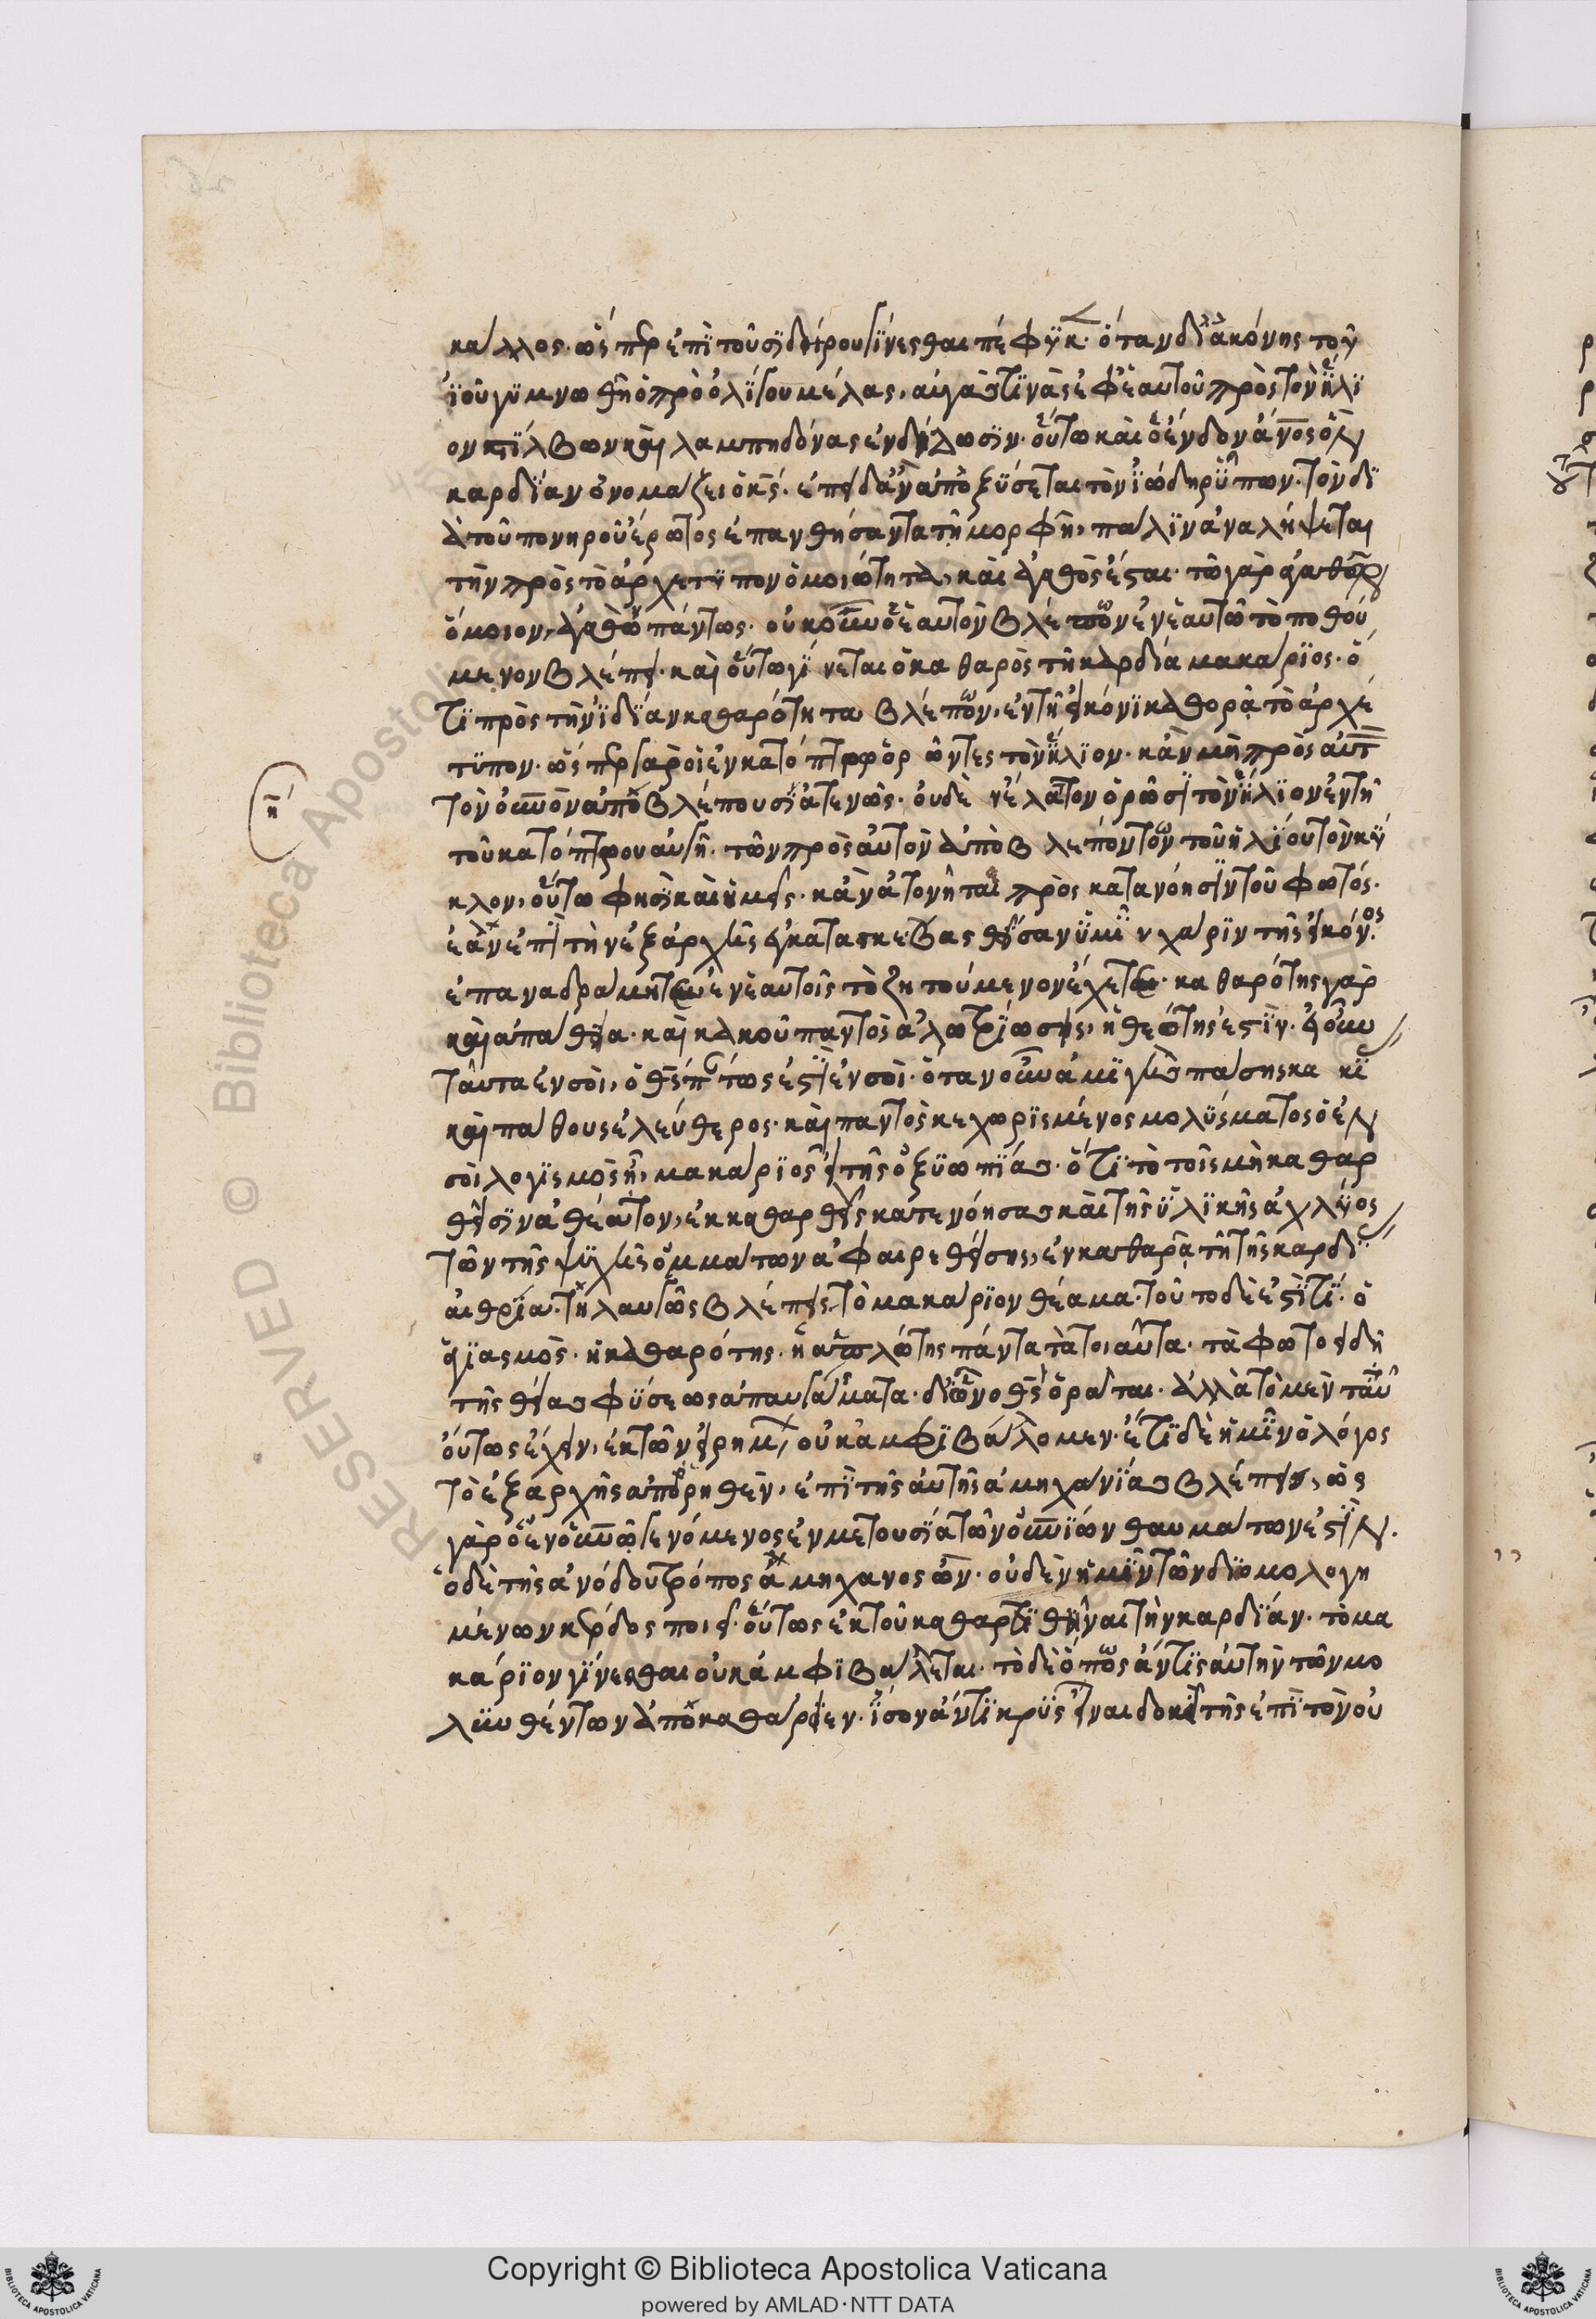 κάλλος. ὥσπερ ἐπὶ τοῦ σιδήρου γίνεσθαι πέφυκ. ὅταν δι᾽ ἀκόνης τοῦ
ἰοῦ γυμνωθῆ ὁ πρὸ ὀλίγου μέλας, αὐγάς τινας ἐφ᾽ ἑαυτοῦ πρὸς τὸν ἥλι
ον στίλβων καὶ λαμπηδόνας ἐνδίδωσιν. οὕτω καὶ ὁ ἔνδον ἄνος ὃν
καρδίαν ὀνομάζει ὁ κς. ἐπειδὰν ἀποξύσεται τὸν ἰώδη ῥύπον. τὸν δι
ὰ τοῦ πονηροῦ ἔρωτος ἐπανθήσαντα τῆ μορφῆ, πάλιν ἀναλήψεται
τὴν πρὸς τὸ ἀρχέτυπον ὁμοιότητα, καὶ ἀγαθὸς ἔσται. τῶ γὰρ ἀγαθῶ
ὅμοιον, ἀγαθὸν πάντως. οὐκοῦν ὁ ἑαυτὸν βλέπων ἐν ἑαυτῶ τὸ ποθού
μενον βλέπει. καὶ οὕτω γίνεται ὁ καθαρὸς τῆ καρδία μακάριος. ὅ
τι πρὸς τὴν ἰδίαν καθαρότητα βλέπων, ἐν τῆ εἰκόνι καθορᾶ τὸ ἀρχέ
τυπον. ὥσπερ γὰρ οἱ ἐν κατόπτρω ὁρῶντες τὸν ἥλιον. κἂν μὴ πρὸς αὐτ
τὸν οὐνον ἀποβλέπουσιν ἀτενῶς. οὐδὲν ἔλαττον ὁρῶσι τὸν ἥλιον ἐν τῆ
τοῦ κατόπτρου αὐγῆ. τῶν πρὸς αὐτὸν ἀποβλεπόντων τοῦ ἡλίου τὸν κύ
κλον, οὕτω φησὶ καὶ ὑμεῖς. κἂν ἀτονῆται πρὸς κατανόησιν τοῦ φωτός.
ἐὰν ἐπὶ τὴν ἐξ ἀρχῆς ἐγκατασκευασθεῖσαν ὑμῖν χάριν τῆς εἰκόνος
ἐπαναδράμητε ἐν ἑαυτοῖς τὸ ζητούμενον ἔχετε. καθαρότης γὰρ
καὶ ἀπάθεια. καὶ κακοῦ παντὸς ἀλλοτρίωσις, ἡ θεότης ἐστὶν. εἰ οὖν
ταῦτα ἐν σοὶ, ὁ θς πάντως ἐστὶν ἐν σοὶ. ὅταν οὖν ἀμιγὴς πάσης κακί
καὶ πάθους ἐλεύθερος. καὶ παντὸς κεχωρισμένος μολύσματος ὁ ἐν
σοὶ λογισμὸς ἦ, μακάριος εἶ τῆς ὀξυωπίας. ὅτι τὸ τοῖς μὴ καθαρ
θεῖσιν ἀθέατον, ἐκκαθαρθεὶς κατενόησας καὶ τῆς ὑλικῆς ἀχλύος
τῶν τῆς ψυχῆς ὀμμάτων ἀφαιρεθείσης, ἐν καθαρᾶ τῆ τῆς καρδί
αἰθρία. τηλαυγῶς βλέπεις τὸ μακάριον θέαμα. τοῦτο δὲ ἐστὶ τί. ὁ
ἁγιασμὸς. ἡ καθαρότης. ἡ ἁπλότης πάντα τὰ τοιαῦτα. τὰ φωτοειδῆ
τῆς θείας φύσεως ἀπαυγάσματα. δι᾽ ὧν ὁ θς ὁρᾶται. ἀλλὰ τὸ μὲν ταῦ
οὕτως ἔχειν, ἐκ τῶν εἰρημ, οὐκ ἀμφιβάλλομεν. ἔτι δὲ ἡμῖν ὁ λόγος
τὸ ἐξαρχῆς ἀπορηθὲν, ἐπὶ τῆς αὐτῆς ἀμηχανίας βλέπει, ὡς
γὰρ ὁ ἐν οὐνῶ γενόμενος ἐν μετουσία τῶν οὐνίων θαυμάτων ἐστὶν.
ὁ δὲ τῆς ἀνόδου τρόπος ἀμήχανος ὢν. οὐδὲν ἡμῖν τῶν διομολογη
μένων κέρδος ποιεῖ. οὕτως ἐκ τοῦ καθαρθῆναι τὴν καρδίαν. τὸ μα
κάριον γίνεσθαι οὐκ ἀμφιβάλλεται. τὸ δὲ ὅπως ἄν τις αὐτὴν τῶν μο
λυνθέντων ἀποκαθάρειεν. ἴσον ἄντικρυς εἶναι δοκεῖ τῆς ἐπὶ τὸν οὐ
η
Copyright © Biblioteca Apostolica Vaticana
powered by AMLAD·NTT DATA
RESERVED © Biblioteca Apostolica